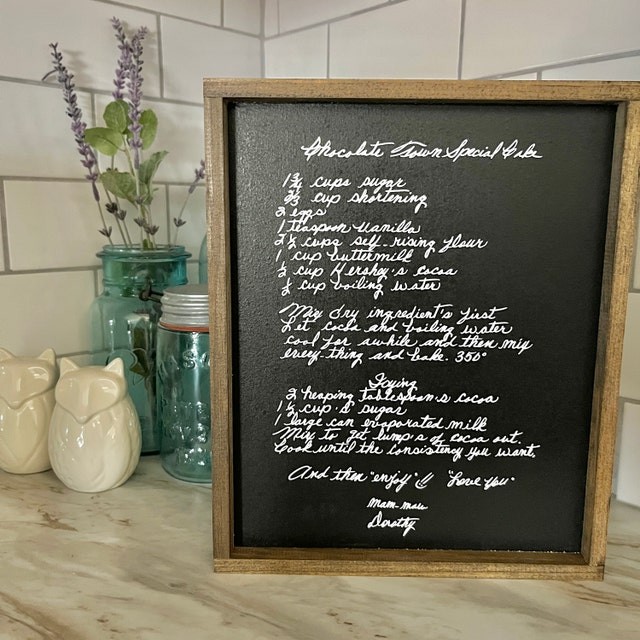 Chocolate Town Special Cake
1 3/4 cups sugar
2/3 cup shortening
2 eggs
1 teaspoon vanilla
2 1/2 cups self-rising flour
1 cup buttermilk
1/2 cup Hershey's cocoa
1/2 cup boiling water
Mix dry ingredient's first
Let cocoa and boiling water
cool for awhile and then mix
every-thing and bake. 350°
Icing
2 heaping tablespoon's cocoa
1 1/2 cup's sugar
1 large can evaporated milk
Mix to get lump's of cocoa out.
Cook until the consistency you want.
And then "enjoy"!! "Love you"
Mam-maw
Dorothy